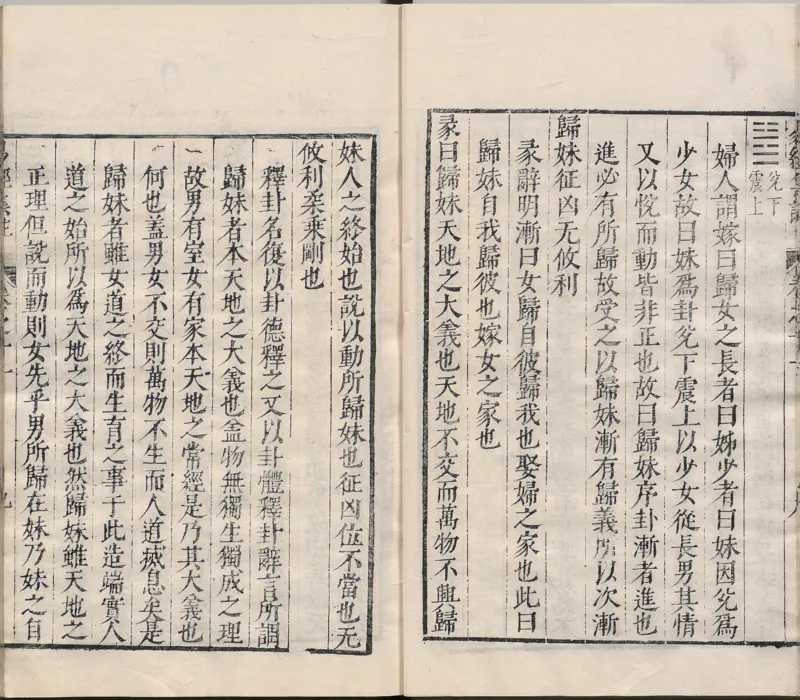 兌下
震上
婦人謂嫁曰歸女之長者曰姊少者曰妹因兌爲
少女故曰妹爲卦兌下震上以少女從長男其情
又以悅而動皆非正也故曰歸妹序卦漸者進也
進必有所歸故受之以歸妹漸有歸義所以次漸
歸妹征凶无攸利
彖辭明漸曰女歸自彼歸我也娶婦之家也此曰
歸妹自我歸彼也嫁女之家也
彖曰歸妹天地之大義也天地不交而萬物不興歸
妹人之終始也說以動所歸妹也征凶位不當也无
攸利柔乘剛也
釋卦名復以卦德釋之又以卦體釋卦辭言所謂
歸妹者本天地之大義也盖物無獨生獨成之理
故男有室女有家本天地之常經是乃其大義也
何也盖男女不交則萬物不生而人道滅息矣是
歸妹者雖女道之終而生育之事于此造端實人
道之始所以爲天地之大義也然歸妹雖天地之
正理但說而動則女先乎男所歸在妹乃妹之自
易經集註